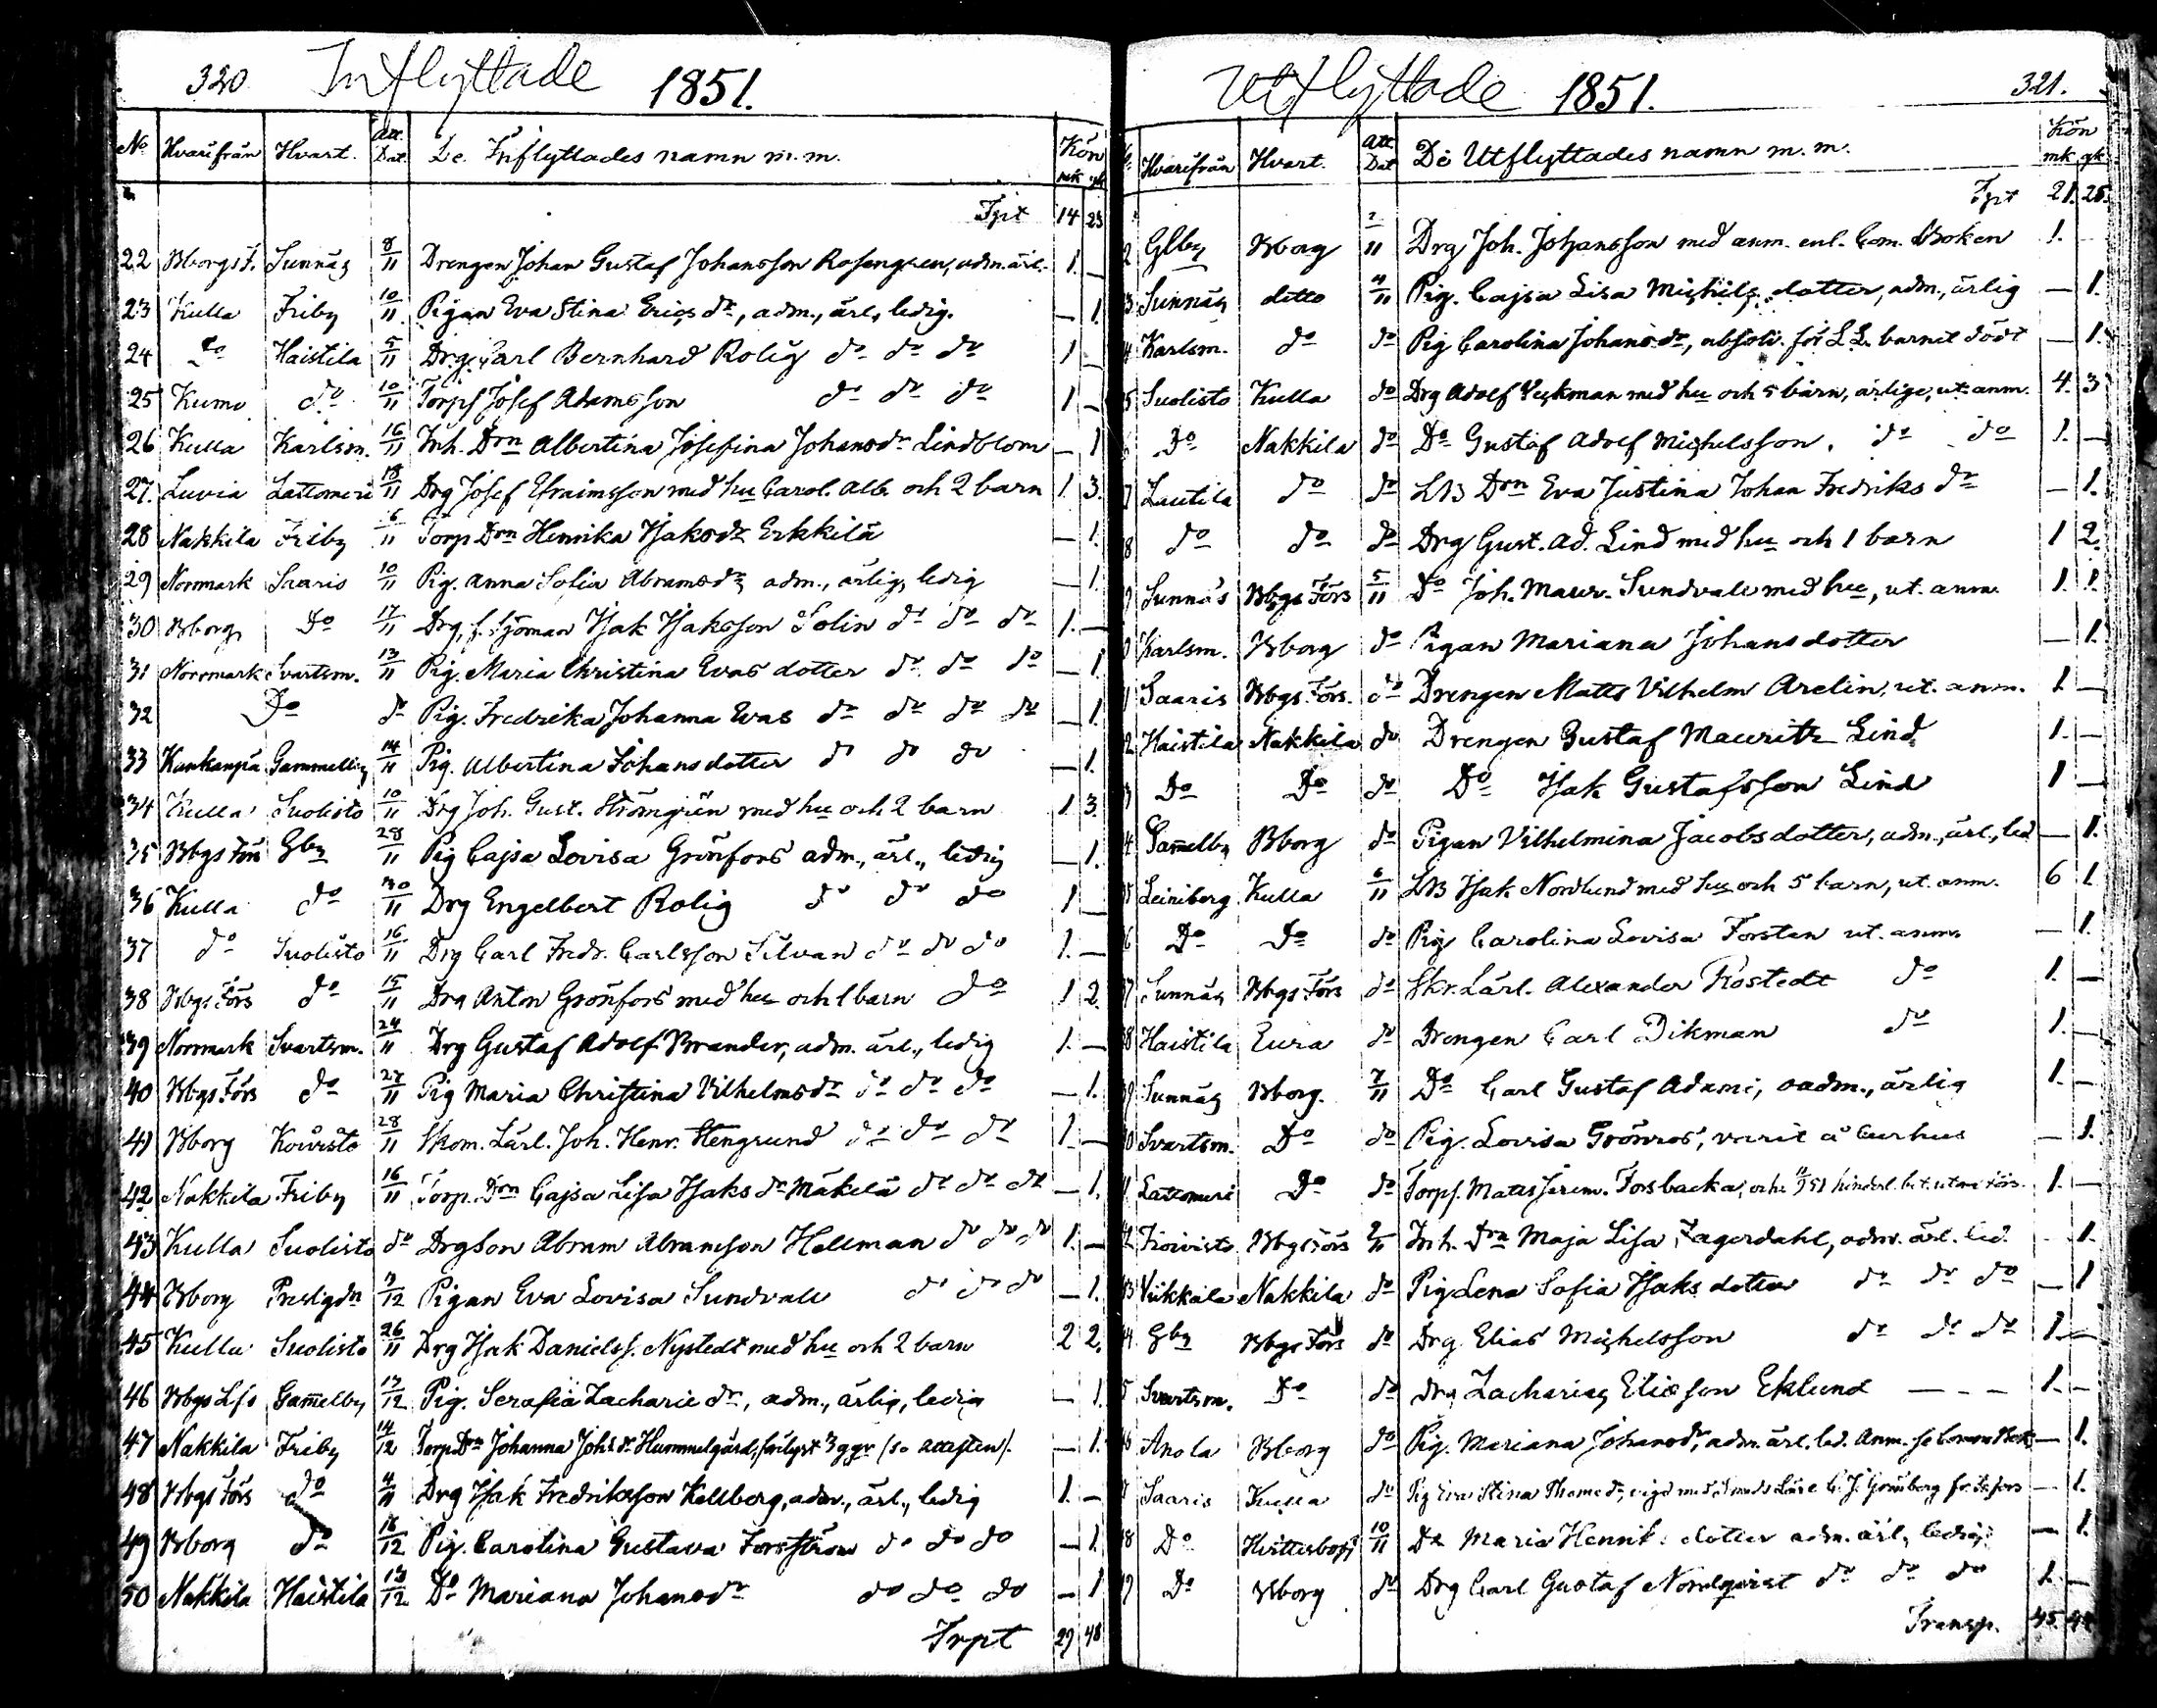 320. Inflyttade 1851.
No Hvarifrån Hvart. Att. Dat. De Inflyttades namn m.m. Kön mk qk
Trpt 14 23
22 Bborgs F. Sunnäs 8/11 Drengen Johan Gustaf Johansson Rosengren, adm. ärl. 1. —
23 Kulla Friby 10/11 Pigan Eva Stina Erics dr, adm., ärl., ledig. — 1.
24 do Haistila 5/11 Drg. Carl Bernhard Rolig do do do 1 —
25 Kumo do 10/11 Torpf Josef Adamsson do do do 1 —
26 Kulla Karlsm. 16/11 Inh. Drn Albertina Josefina Johansdr Lindblom — 1
27. Luvia Lattomeri 18/11 Drg Josef Efraimsson med hu Carol. Alb. och 2 barn 1. 3.
28 Nakkila Friby 6/11 Torp Drn Henrika Isaksdr Erkkilä — 1.
29 Norrmark Saaris 10/11 Pig. Anna Sofia Abramsdr, adm., ärlig, ledig — 1.
30 Bborg Do 17/11 Drg, f. Sjöman Isak Isaksson Solin do do do 1. —
31 Norrmark Svartsm. 13/11 Pig. Maria Christina Evas dotter do do do — 1
32 Do do Pig. Fredrika Johanna Evas do do do do — 1.
33 Kankanpä Gammelby 14/11 Pig. Albertina Johansdotter do do do — 1.
34 Kulla Suolisto 10/11 Drg Joh. Gust. Strömgrén med hu och 2 barn 1 3.
35 Bbgs Förs Gby 28/11 Pig Cajsa Lovisa Grönfors adm., ärl., ledig — 1.
36 Kulla do 30/11 Drg Engelbert Rolig do do do 1 —
37 do Suolisto 16/11 Drg Carl Fredr. Carlsson Silvan do do do 1. —
38 Bbgs Förs do 15/11 Drg Anton Grönfors med hu och 1 barn do 1 2
39 Norrmark Svartsm. 24/11 Drg Gustaf Adolf Brander, adm. ärl., ledig 1. —
40 Bbgs Förs do 27/11 Pig Maria Christina Vilhelmsdr do do do — 1.
41 Bborg Koivisto 28/11 Skom. Lärl. Joh. Henr. Stengrund do do do 1. —
42 Nakkila Friby 16/11 Torp. Drn Cajsa Lisa Isaks dr Mäkelä do do do — 1.
43 Kulla Suolisto do Drgson Abram Abramsson Hellman do do do 1. —
44 Bborg Prestgdn 7/12 Pigan Eva Lovisa Sundvall do do do — 1.
45 Kulla Suolisto 26/11 Drg Isak Danielss. Nystedt med hu och 2 barn 2 2.
46 Bbgs Lfs Gam̄elby 13/12 Pig. Serafia Zacharie dr, adm., ärlig, ledig — 1.
47 Nakkila Friby 14/12 Torp Drn Johanna Johs dr Hummelgård, frilyst 3 ggr (se attesten). — 1.
48 Bbgs Förs do 4/11 Drg Isak Fredriksson Kellberg, adm., ärl., ledig 1. —
49 Bborg do 18/12 Pig. Carolina Gustava Forsström do do do — 1
50 Nakkila Haistila 13/12 Do Mariana Johansdr do do do — 1
Trpt 29 48
Utflyttade 1851. 321.
Hvarifrån Hvart. Att Dat De Utflyttades namn m.m. Kön mk qk
Trpt 21. 25.
2 Glby Bborg 2/11 Drg Joh. Johansson med anm. enl. Com. Boken 1. —
3 Sunnäs ditto 4/11 Pig. Cajsa Lisa Michels dotter, adm., ärlig — 1.
4 Karlsm. do do Pig Carolina Johansdr, absolv. för L.L. barnet dödt — 1.
5 Suolisto Kulla do Drg Adolf Vickman med hu och 5 barn, ärlige, ut. anm. 4. 3
6 Do Nakkila do Do Gustaf Adolf Michelsson. do do 1. —
7 Lautila do do LB Drn Eva Justina Johan Fredriks dr — 1.
8 do do do Drg Gust. Ad. Lind med hu och 1 barn 1 2.
9 Sunnäs Bbgs Förs 5/11 Do Joh. Maur. Sundvall med hu, ut. anm. 1. 1.
0 Karlsm. Bborg do Pigan Mariana Johansdotter — 1.
1 Saaris Bbgs Förs. do Drengen Matts Vilhelm Arelin, ut. anm. 1 —
2 Haistila Nakkila do Drengen Gustaf Mauritz Lind 1. —
3 Do Do do Do Isak Gustafsson Lind 1 —
4 Gam̄elby Bborg do Pigan Vilhelmina Jacobsdotter, adm., ärl., led — 1.
5 Leiniberg Kulla 6/11 LB Isak Nordlund med hu och 5 barn, ut. anm. 6 1
6 Do Do do Pig Carolina Lovisa Forsten ut. anm. — 1.
7 Sunnäs Bbgs Förs do Skr. Lärl. Alexander Frostedt do 1. —
8 Haistila Eura do Drengen Carl Dikman do 1. —
9 Sunnäs Bborg. 7/11 Do Carl Gustaf Adami, oadm., ärlig 1. —
0 Svartsm. Do do Pig. Lovisa Grönroos, varit å Curhus — 1.
1 Lattomeri Do do Torpf. Matts Jerem. Forsbacka, 1. —
2 Koivisto Bbgs Förs 2/11 Inh. Drn Maja Lisa Fagerdahl, adm. ärl. led. — 1.
3 Viikkala Nakkila do Pig Lena Sofia Isaks dotter do do do — 1
4 Gby Bbgs Förs do Drg. Elias Michelsson do do do 1 —
5 Svartsm. Do do Drg Zacharias Eliasson Eklund — — — 1. —
6 Anola Bborg do Pig. Mariana Johansdr, adm. ärl. led. Anm. se — 1.
7 Saaris Kulla do Pig Eva Stina Thome dr, C. J. Grönberg — 1.
8 Do Hvittisbofj 10/11 Do Maria Henriks dotter adm. ärl., ledig — 1.
9 Do Bborg do Drg Carl Gustaf Nordqvist do do do 1. —
Transp. 45. 44